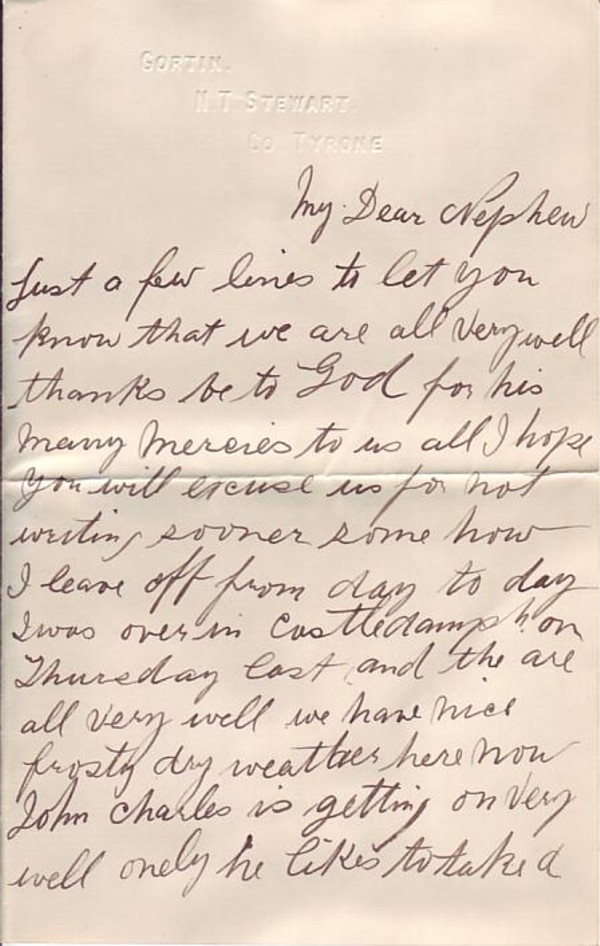 GORTIN.
N.T. STEWART.
CO TYRONE
My Dear Nephew
Just a few lines to let you
know that we are all very well
thanks be to God for his
many Mercies to us all I hope
you will excuse us for not
writing sooner some how
I leave off from day to day
I was over in Castledamph on
Thursday last and the are
all very well we have nice
frosty dry weather here now
John Charles is getting on very
well onely he likes to take a